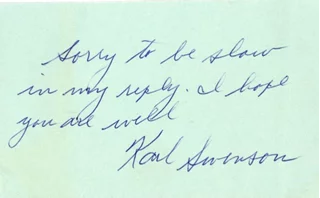 Sorry to be slow
in my reply. I hope
you are well
Karl Swenson